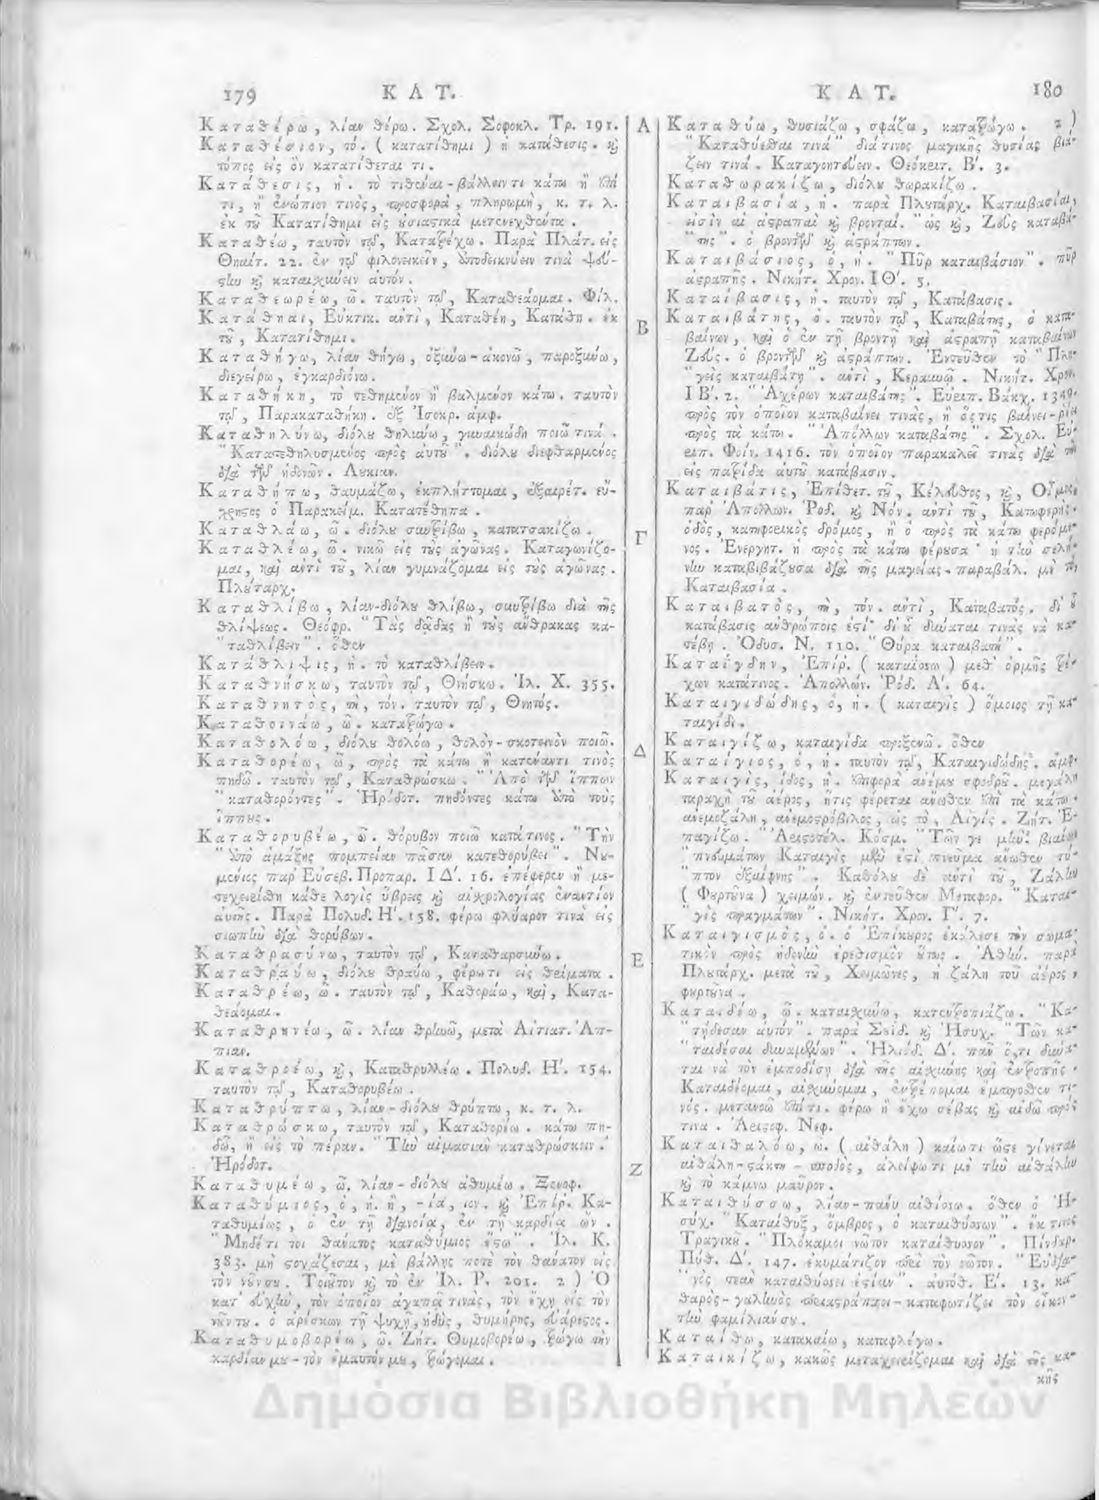 179 ΚΑΤ.
Καταθέρω, λίαν θέρω. Σχολ. Σοφοκλ. Τρ. 191.
Καταθέσιον, τό. (κατατίθημι) ἡ κατάθεσις. ϗ
τόπος εἰς ὃν κατατίθεται τι.
Κατάθεσις, ἡ. τὸ τιθέναι-βάλλειν τι κάτω ἢ ἐπί
τι, ἢ ἐνώπιον τινὸς, προσφορά, πληρωμή, κ. τ. λ.
ἐκ τοῦ Κατατίθημι εἰς οὐσιαστικὰ μετενεχθέντα.
Καταθέω, ταυτὸν τῷ, Κατατρέχω. Παρὰ Πλάτ. εἰς
Θεαίτ. 22. ἐν τῷ φιλονεικεῖν, ἀποδεικνύειν τινὰ ψεύ-
στην ϗ καταισχύνειν αὐτόν.
Καταθεωρέω, ῶ. ταυτὸν τῷ, Καταθεάομαι. Φίλ.
Κατάθηαι, Εὐκτικ. αντὶ, Καταθέῃ, Κατάθῃ. ἐκ
τοῦ, Κατατίθημι.
Καταθήγω, λίαν θήγω, ὀξύνω-ἀκονῶ, παροξύνω,
διεγείρω, ἐγκαρδιόνω.
Καταθήκη, τὸ τεθημένον ἢ βαλμένον κάτω. ταυτὸν
τῷ, Παρακαταθήκη. ἐξ Ἰσοκρ. ἀμφ.
Καταθηλύνω, διόλου θηλύνω, γυναικώδη ποιῶ τινά.
"Κατατεθηλυσμένος πρὸς αὐτοῦ". διόλου διεφθαρμένος
διὰ τῶν ἡδονῶν. Λουκιαν.
Καταθήπω, θαυμάζω, ἐκπλήττομαι, ἐξαιρέτ. εὔ-
χρηστος ὁ Παρακείμ. Κατατέθηπα.
Καταθλάω, ῶ. διόλου συντρίβω, κατατσακίζω.
Καταθλέω, ῶ. νικῶ εἰς τοὺς ἀγῶνας. Καταγωνίζο-
μαι, καὶ αντὶ τοῦ, λίαν γυμνάζομαι εἰς τοὺς ἀγῶνας.
Πλούταρχ.
Καταθλίβω, λίαν-διόλου θλίβω, συντρίβω διὰ τῆς
θλίψεως. Θεόφρ. "Τὰς δᾷδας ἢ τοὺς ἄνθρακας κα-
"ταθλίβειν". ὅθεν
Κατάθλιψις, ἡ. τὸ καταθλίβειν.
Καταθνήσκω, ταυτὸν τῷ, Θνήσκω. Ἰλ. Χ. 355.
Καταθνητὸς, τὴ, τόν. ταυτὸν τῷ, Θνητός.
Καταθοινάω, ῶ. κατατρώγω.
Καταθολόω, διόλου θολόω, θολὸν-σκοτεινὸν ποιῶ.
Καταθορέω, ῶ, πρὸς τὰ κάτω ἢ κατέναντι τινὸς
πηδῶ. ταυτὸν τῷ, Καταθρώσκω. "Ἀπὸ τῶν ἵππων
"καταθορόντες". Ἡρόδοτ. πηδόντες κάτω ἀπὸ τοὺς
ἵππους.
Καταθορυβέω, ῶ. θόρυβον ποιῶ κατάτινος. "Τὴν
"ὑπὸ ἁμάξης πομπείαν πᾶσαν κατεθορύβει". Νου-
μένιος παρ' Εὐσεβ. Προπαρ. ΙΔ'. 16. ἐπέφερεν ἢ με-
τεχειρίσθη κάθε λογῆς ὕβρεις ϗ αἰσχρολογίας ἐναντίον
αὐτῆς. Παρὰ Πολυδ. Η'. 158. φέρω φλύαρον τινὰ εἰς
σιωπὴν διὰ θορύβων.
Καταθρασύνω, ταυτὸν τῷ, Καταθαρσύνω.
Καταθραύω, διόλου θραύω, φέρω τι εἰς θραύματα.
Καταθρέω, ῶ. ταυτὸν τῷ, Καθοράω, καὶ, Κατα-
θεάομαι.
Καταθρηνέω, ῶ. λίαν θρηνῶ, μετὰ Αἰτιατ. Ἀπ-
πιαν.
Καταθροέω, ϗ, Καταθρυλλέω. Πολυδ. Η'. 154.
ταυτὸν τῷ, Καταθορυβέω.
Καταθρύπτω, λίαν-διόλου θρύπτω, κ. τ. λ.
Καταθρώσκω, ταυτὸν τῷ, Καταθορέω. κάτω πη-
δῶ, ἢ εἰς τὸ πέραν. "Τὴν αἱμασιὰν καταθρώσκειν."
Ἡρόδοτ.
Καταθυμέω, ῶ. λίαν-διόλου ἀθυμέω. Ξενοφ.
Καταθύμιος, ὁ, ἡ. ἢ, -ία, ιον. ϗ Ἐπίρ. Κα-
ταθυμίως, ὁ ἐν τῇ διανοίᾳ, ἐν τῇ καρδίᾳ ὤν.
"Μηδέ τι τοι θάνατος καταθύμιος ἔστω". Ἰλ. Κ.
383. μὴ στοχάζεσαι, μὲ βάλλῃς ποτὲ τὸν θάνατον εἰς
τὸν νοῦν σου. Τοιοῦτον ϗ τὸ ἐν Ἰλ. Ρ. 201. 2) Ὁ
κατ' εὐχὴν, τὸν ὁποῖον ἀγαπᾷ τινὰς, τὸν ἔχῃ εἰς τὸν
νοῦν του. ὁ ἀρέσκων τῇ ψυχῇ, ἡδὺς, θυμήρης, εὐάρεστος.
Καταθυμοβορέω, ῶ. Ζήτ. Θυμοβορέω, τρώγω τὴν
καρδίαν μου-τὸν ἐμαυτόν μου, τρώγομαι.
Α
Β
Γ
Δ
Ε
Ζ
ΚΑΤ. 180
Καταθύω, θυσιάζω, σφάζω, κατατρώγω. 2)
"Καταθύεσθαι τινὰ" διά τινος μαγικῆς θυσίας βιά-
ζειν τινά. Καταγοητεύειν. Θεόκριτ. Β'. 3.
Καταθωρακίζω, διόλου θωρακίζω.
Καταιβασία, ἡ. παρὰ Πλουτάρχ. Καταιβασίαι,
εἰσὶν αἱ ἀστραπαὶ ϗ βρονταί. "ὡς ϗ, Ζεὺς καταβά-
"της". ὁ βροντῶν ϗ ἀστράπτων.
Καταιβάσιος, ὁ, ἡ. "Πῦρ καταιβάσιον". πῦρ
ἀστραπῆς. Νικήτ. Χρον. ΙΘ'. 5.
Καταίβασις, ἡ. ταυτὸν τῷ, Κατάβασις.
Καταιβάτης, ὁ. ταυτὸν τῷ, Καταβάτης, ὁ κατα-
βαίνων, καὶ ὁ ἐν τῇ βροντῇ καὶ ἀστραπῇ καταβαίνων
Ζεύς. ὁ βροντῶν ϗ ἀστράπτων. Ἐντεῦθεν τὸ "Πλη-
"γεὶς καταιβάτῃ". αντὶ, Κεραυνῷ. Νικήτ. Χρον.
ΙΒ'. 2. "Ἀχέρων καταιβάτης". Εὐριπ. Βάκχ. 1349.
πρὸς τὸν ὁποῖον καταβαίνει τινὰς, ἢ ὅστις βαίνει-ρέει
πρὸς τὰ κάτω. "Ἀπόλλων καταιβάτης". Σχολ. Εὐ-
ριπ. Φοίν. 1416. τὸν ὁποῖον παρακαλεῖ τινὰς διὰ τὴν
εἰς πατρίδα αὐτοῦ κατάβασιν.
Καταιβάτις, Ἐπίθετ. τοῦ, Κέλευθος, ϗ, Οἶμος,
παρ' Ἀπολλων. Ῥοδ. ϗ Νόν. αντὶ τοῦ, Κατωφερὴς
ὁδὸς, κατηφορικὸς δρόμος, ἢ ὁ πρὸς τὰ κάτω φερόμε-
νος. Ἐνεργητ. ἡ πρὸς τὰ κάτω φέρουσα· ἡ τὴν σελή-
νην καταβιβάζουσα διὰ τῆς μαγείας-παραβάλ. μὲ τὴν
Καταιβασία.
Καταιβατὸς, τὴ, τόν. αντὶ, Καταβατός. δι' οὗ
κατάβασις ἀνθρώποις ἐστί· δι' οὗ δύναται τινὰς νὰ κα-
τέβῃ. Ὀδυσ. Ν. 110. "Θύρα καταιβατή".
Καταίγδην, Ἐπίρ. (καταΐσσω) μεθ' ὁρμῆς τρέ-
χων κατάτινος. Ἀπολλών. Ῥόδ. Α'. 64.
Καταιγιδώδης, ὁ, ἡ. (καταιγὶς) ὅμοιος τῇ κα-
ταιγίδι.
Καταιγίζω, καταιγίδα προξενῶ. ὅθεν
Καταίγιος, ὁ, ἡ. ταυτὸν τῷ, Καταιγιδώδης. ἀμφ.
Καταιγὶς, ίδος, ἡ. ἐπιφορὰ ἀνέμου σφοδροῦ. μεγάλη
ταραχὴ τοῦ ἀέρος, ἥτις φέρεται ἄνωθεν ἐπὶ τὰ κάτω.
ἀνεμοζάλη, ἀνεμοστρόβιλος, ὡς τὸ, Αἰγίς. Ζήτ. Ἐ-
παιγίζω. "Ἀριστοτέλ. Κόσμ. "Τῶν γε μὴν βιαίων
"πνευμάτων Καταιγὶς μέν ἐστι πνεῦμα ἄνωθεν τύ-
"πτον ἐξαίφνης". Καθόλου δὲ αντὶ τοῦ, Ζάλην
(Φορτοῦνα) χειμών. ϗ ἐντεῦθεν Μεταφορ. "Καται-
"γὶς πραγμάτων". Νικήτ. Χρον. Γ'. 7.
Καταιγισμὸς, ὁ. ὁ Ἐπίκουρος ἐκάλεσε τὸν σωμα-
τικὸν πρὸς ἡδονὴν ἐρεθισμὸν οὕτως. Ἀθήν. παρὰ
Πλουτάρχ. μετὰ τοῦ, Χειμῶνες, ἡ ζάλη τοῦ ἀέρος,
φουρτοῦνα.
Καταιδέω, ῶ. καταισχύνω, κατεντροπιάζω. "Κα-
"τῄδεσαν αὐτὸν". παρὰ Σουίδ. ϗ Ἡσυχ. "Τῶν κα-
"ταιδέσαι δυναμένων". Ἡλιόδ. Δ'. πᾶν ὅ,τι δύνα-
ται νὰ τὸν ἐμποδίσῃ διὰ τῆς αἰσχύνης καὶ ἐντροπῆς.
Καταιδέομαι, αἰσχύνομαι, ἐντρέπομαι ἔμπροσθεν τι-
νός. μετανοῶ ἐπί τι. φέρω ἢ ἔχω σέβας ϗ αἰδῶ πρός
τινα. Ἀριστοφ. Νεφ.
Καταιθαλόω, ῶ. (αἰθάλη) καίω τι ὥστε γίνεται
αἰθάλη-στάκτη-σποδὸς, ἀλείφω τι μὲ τὴν αἰθάλην
ϗ τὸ κάμνω μαῦρον.
Καταιθύσσω, λίαν-πάνυ αἰθύσσω. ὅθεν ὁ Ἡ-
σύχ. "Καταίθυξ, ὄμβρος, ὁ καταιθύσσων". ἔκ τινος
Τραγικοῦ. "Πλόκαμοι νῶτον καταίθυσσον". Πίνδαρ.
Πύθ. Δ'. 147. ἐκυμάτιζον περὶ τὸν νῶτον. "Εὐδία-
"νὸς πεαν καταιθύσσει ἑστίαν". αὐτόθ. Ε'. 13. κα-
θαρὸς-γαληνὸς περιαστράπτει-καταφωτίζει τὸν οἶκον-
τὴν φαμίλιαν σου.
Καταίθω, κατακαίω, καταφλέγω.
Καταικίζω, κακῶς μεταχειρίζομαι καὶ διὰ τῆς κα-
κῆς
Δημόσια Βιβλιοθήκη Μηλεών